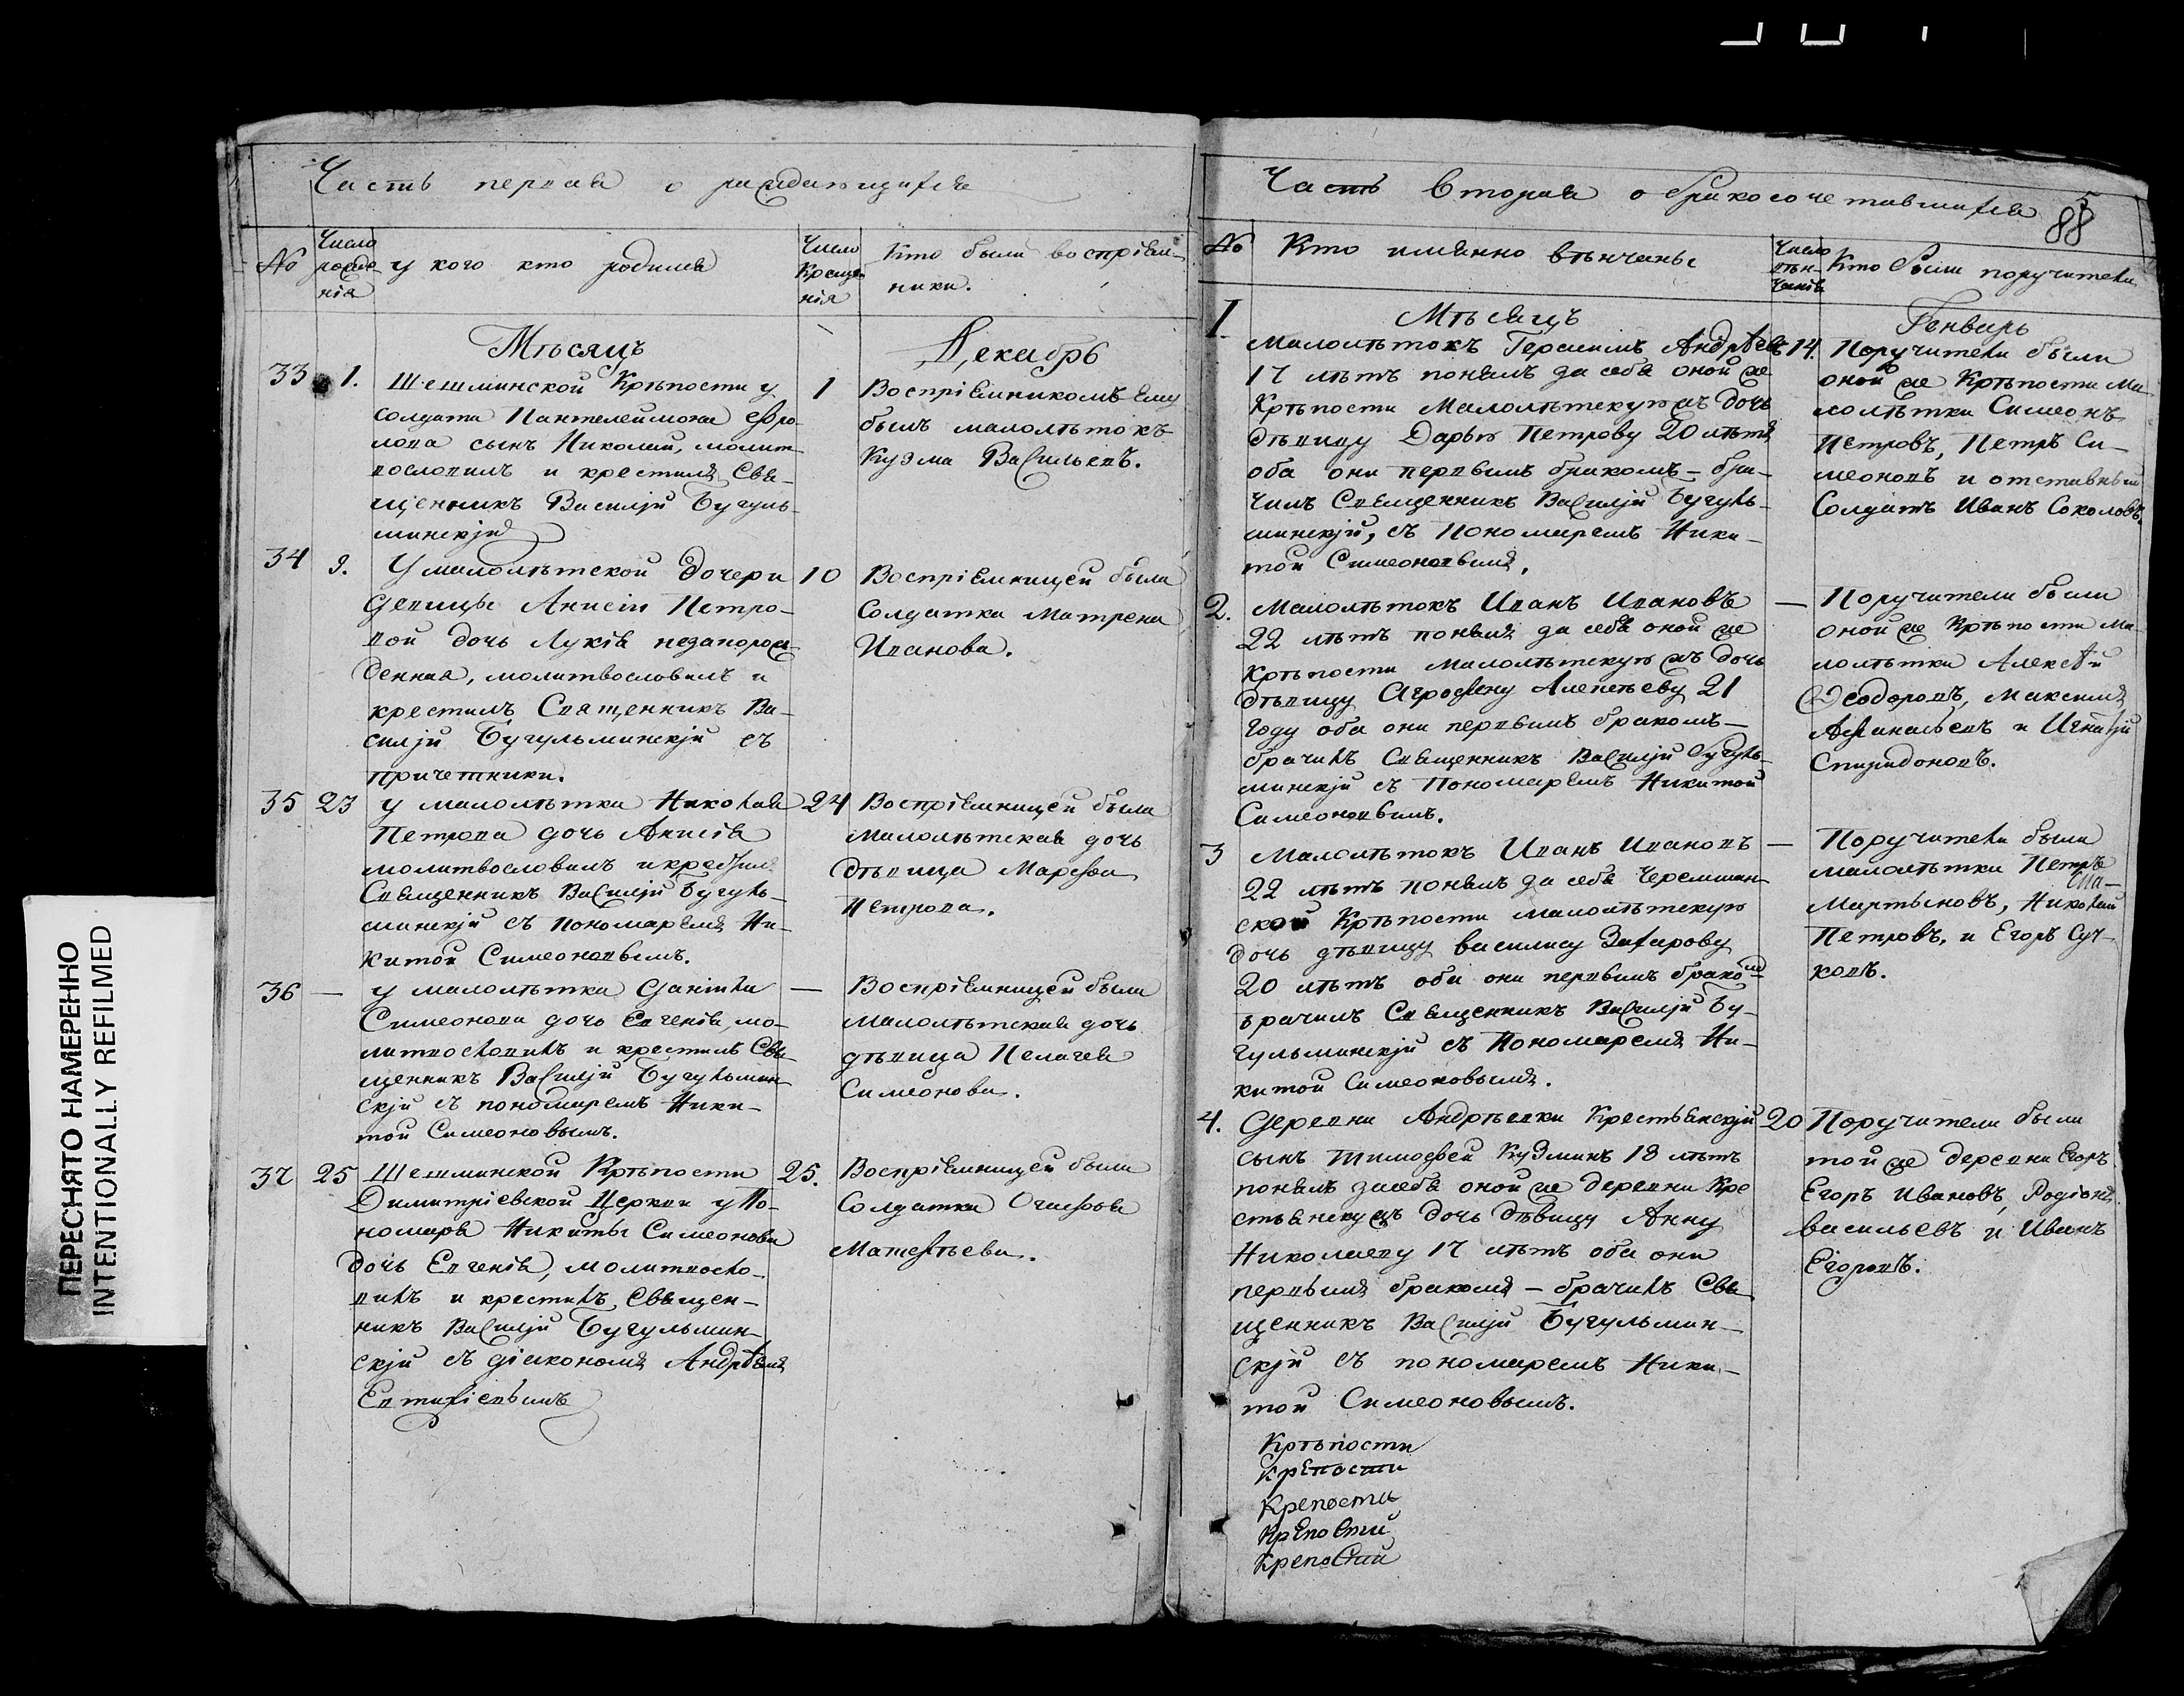 Часть первая о раждающихся
№
Число рожде-
нія
у кого кто родился
Число Креще-
нія
Кто были воспріем-
ники.
Мѣсяцъ Декабрь
33 1. Шешминской Крѣпости у 1
солдата Пантелеймона Фро-
лова сынъ Николай, молит
вословилъ и крестилъ Свя-
щенникъ Василій Бугуль-
минскій
Воспріемникомъ ему
былъ малолѣтокъ
Кузма Васильевъ.
34 9. У малолѣтской дочери 10
девицы Анисіи Петро-
вой дочь Лукія незапорож-
денная, молитвословилъ и
крестилъ Священникъ Ва-
силій Бугульминскій съ
причетники.
Воспріемницей была
Солдатка Матрена
Иванова.
35 23 у малолѣтка Николая 24
Петрова дочь Анисія
молитвословилъ и крестилъ
Священникъ Василій Бугуль-
минскій съ пономаремъ Ни-
китой Симеоновымъ.
Воспріемницей была
Малолѣтская дочь
дѣвица Марѳа
Петрова.
36 — у малолѣтка Даніила —
Симеонова дочь Евгенія, мо-
литвословилъ и крестилъ Свя-
щенникъ Василій Бугульмин-
скій съ пономаремъ Ники-
той Симеоновымъ.
Воспріемницей была
Малолѣтская дочь
дѣвица Пелагея
Симеонова.
37 25 Шешминской Крѣпости 25.
Димитріевской Церкви у По-
номаря Никиты Симеонова
дочь Евгенія, молитвосло-
вилъ и крестилъ Священ-
никъ Василій Бугульмин-
скій съ діякономъ Андрѣемъ
Евтихіевымъ
Воспріемницей была
Солдатка
Матѳѣева.
Часть Вторая о бракосочетавшихся
5
88
№
Кто имянно вѣнчаны
Число
вѣн-
чанія
Кто были поручители
Мѣсяцъ Генварь
1. Малолѣтокъ Герасимъ Андрѣевъ 14.
17 лѣтъ понялъ за себя оной же
Крѣпости Малолѣтскую жъ дочь
дѣвицу Дарью Петрову 20 лѣтъ
оба они первымъ бракомъ — бра-
чилъ Священникъ Василій Бугуль-
минскій, съ Пономаремъ Ники-
той Симеоновымъ.
Поручители были
оной же Крѣпости Ма-
лолѣтки Симеонъ
Петровъ, Петръ Си-
меоновъ и отставный
Солдатъ Иванъ Соколовъ
2. Малолѣтокъ Иванъ Ивановъ —
22 лѣтъ понялъ за себя оной же
крѣпости малолѣтскую жъ дочь
дѣвицу Агрофену 21
году оба они первымъ бракомъ —
брачилъ Священникъ Василій Бугуль-
минскій съ Пономаремъ Никитой
Симеоновымъ.
Поручители были
оной же Крѣпости Ма-
лолѣтки Алексѣй
Ѳеодоровъ, Максимъ
Аѳанасьевъ и Игнатій
Спиридоновъ.
3 Малолѣтокъ Иванъ Ивановъ —
22 лѣтъ понялъ за себя Черемшан-
ской Крѣпости малолѣтскую
дочь дѣвицу Василису Захарову
20 лѣтъ оба они первымъ бракомъ
брачилъ Священникъ Василій Бу-
гульминскій съ Пономаремъ Ни-
китой Симеоновымъ.
Поручители были
малолѣтки Петръ
Мартыновъ, Николай
Петровъ, и Егоръ Суч-
ковъ.
4. Деревни Андрѣевки Крестьянскій 20
сынъ Тимоѳей Кузминъ 18 лѣтъ
понялъ засебя оной же деревни Кре
стьянскую жъ дочь дѣвицу Анну
Николаеву 17 лѣтъ оба они
первымъ бракомъ — брачилъ Свя
щенникъ Василій Бугульмин-
скій съ пономаремъ Ники-
той Симеоновымъ.
Поручители были
той же деревни Егоръ
Егоръ Ивановъ, Родіонъ
Васильевъ и Иванъ
Егоровъ.
Крѣпости
Крепости
Крепости
Крепости
Крепости
ПЕРЕСНЯТО НАМЕРЕННО
INTENTIONALLY REFILMED